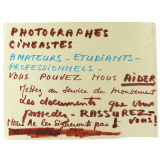 PHOTOGRAPHES
CINEASTES
AMATEURS - ETUDIANTS -
PROFESSIONNELS -
VOUS POUVEZ NOUS AIDER
Mettez au service du mouvement
Les documents que vous
possedez - RASSUREZ-
Nous Ne les signerons pas ! VOUS !